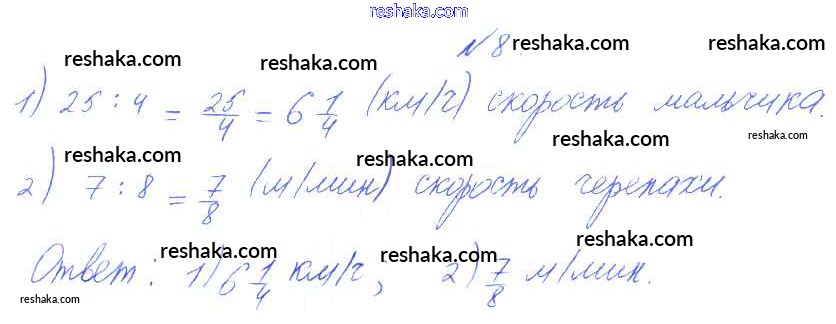 reshaka.com
№ 8.
reshaka.com reshaka.com reshaka.com reshaka.com
1) 25 : 4 = 25/4 = 6 1/4 (км/ч) скорость мальчика.
reshaka.com reshaka.com reshaka.com reshaka.com
2) 7 : 8 = 7/8 (м/мин) скорость черепахи.
reshaka.com reshaka.com reshaka.com
Ответ: 1) 6 1/4 км/ч, 2) 7/8 м/мин.
reshaka.com reshaka.com